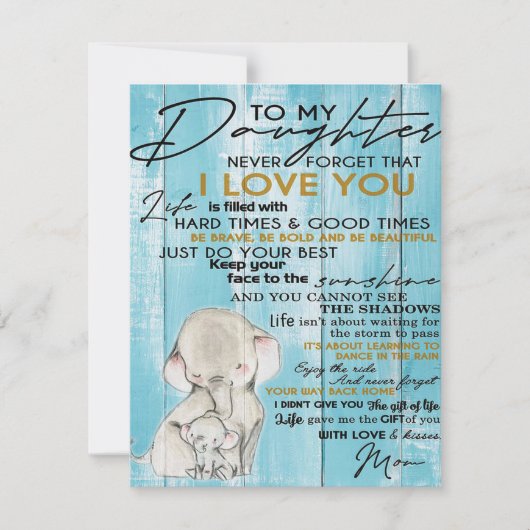 TO MY
Daughter
NEVER FORGET THAT
I LOVE YOU
Life is filled with
HARD TIMES & GOOD TIMES
BE BRAVE, BE BOLD AND BE BEAUTIFUL
JUST DO YOUR BEST
Keep your
face to the sunshine
AND YOU CANNOT SEE
THE SHADOWS
Life isn't about waiting for
the storm to pass
IT'S ABOUT LEARNING TO
DANCE IN THE RAIN
Enjoy the ride
And never forget
YOUR WAY BACK HOME
I DIDN'T GIVE YOU The gift of life
Life gave me the GIFT of you
WITH LOVE & kisses.
Mom